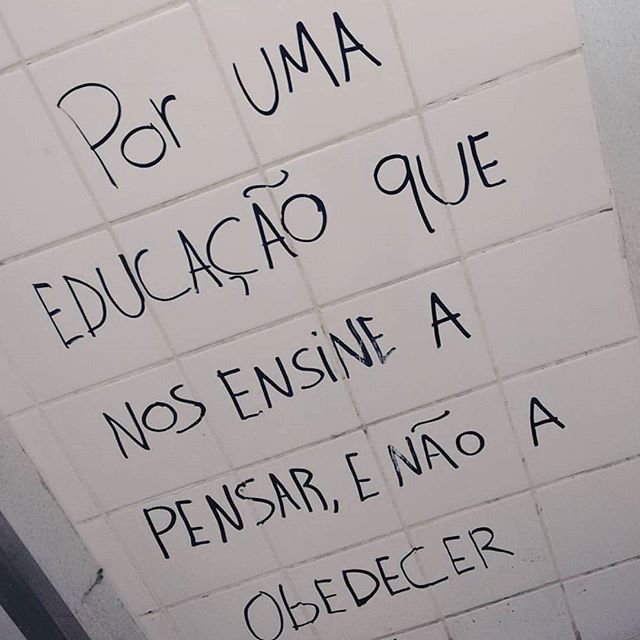 Por UMA
EDUCAÇÃO QUE
NOS ENSINE A
PENSAR, E NÃO A
OBEDECER